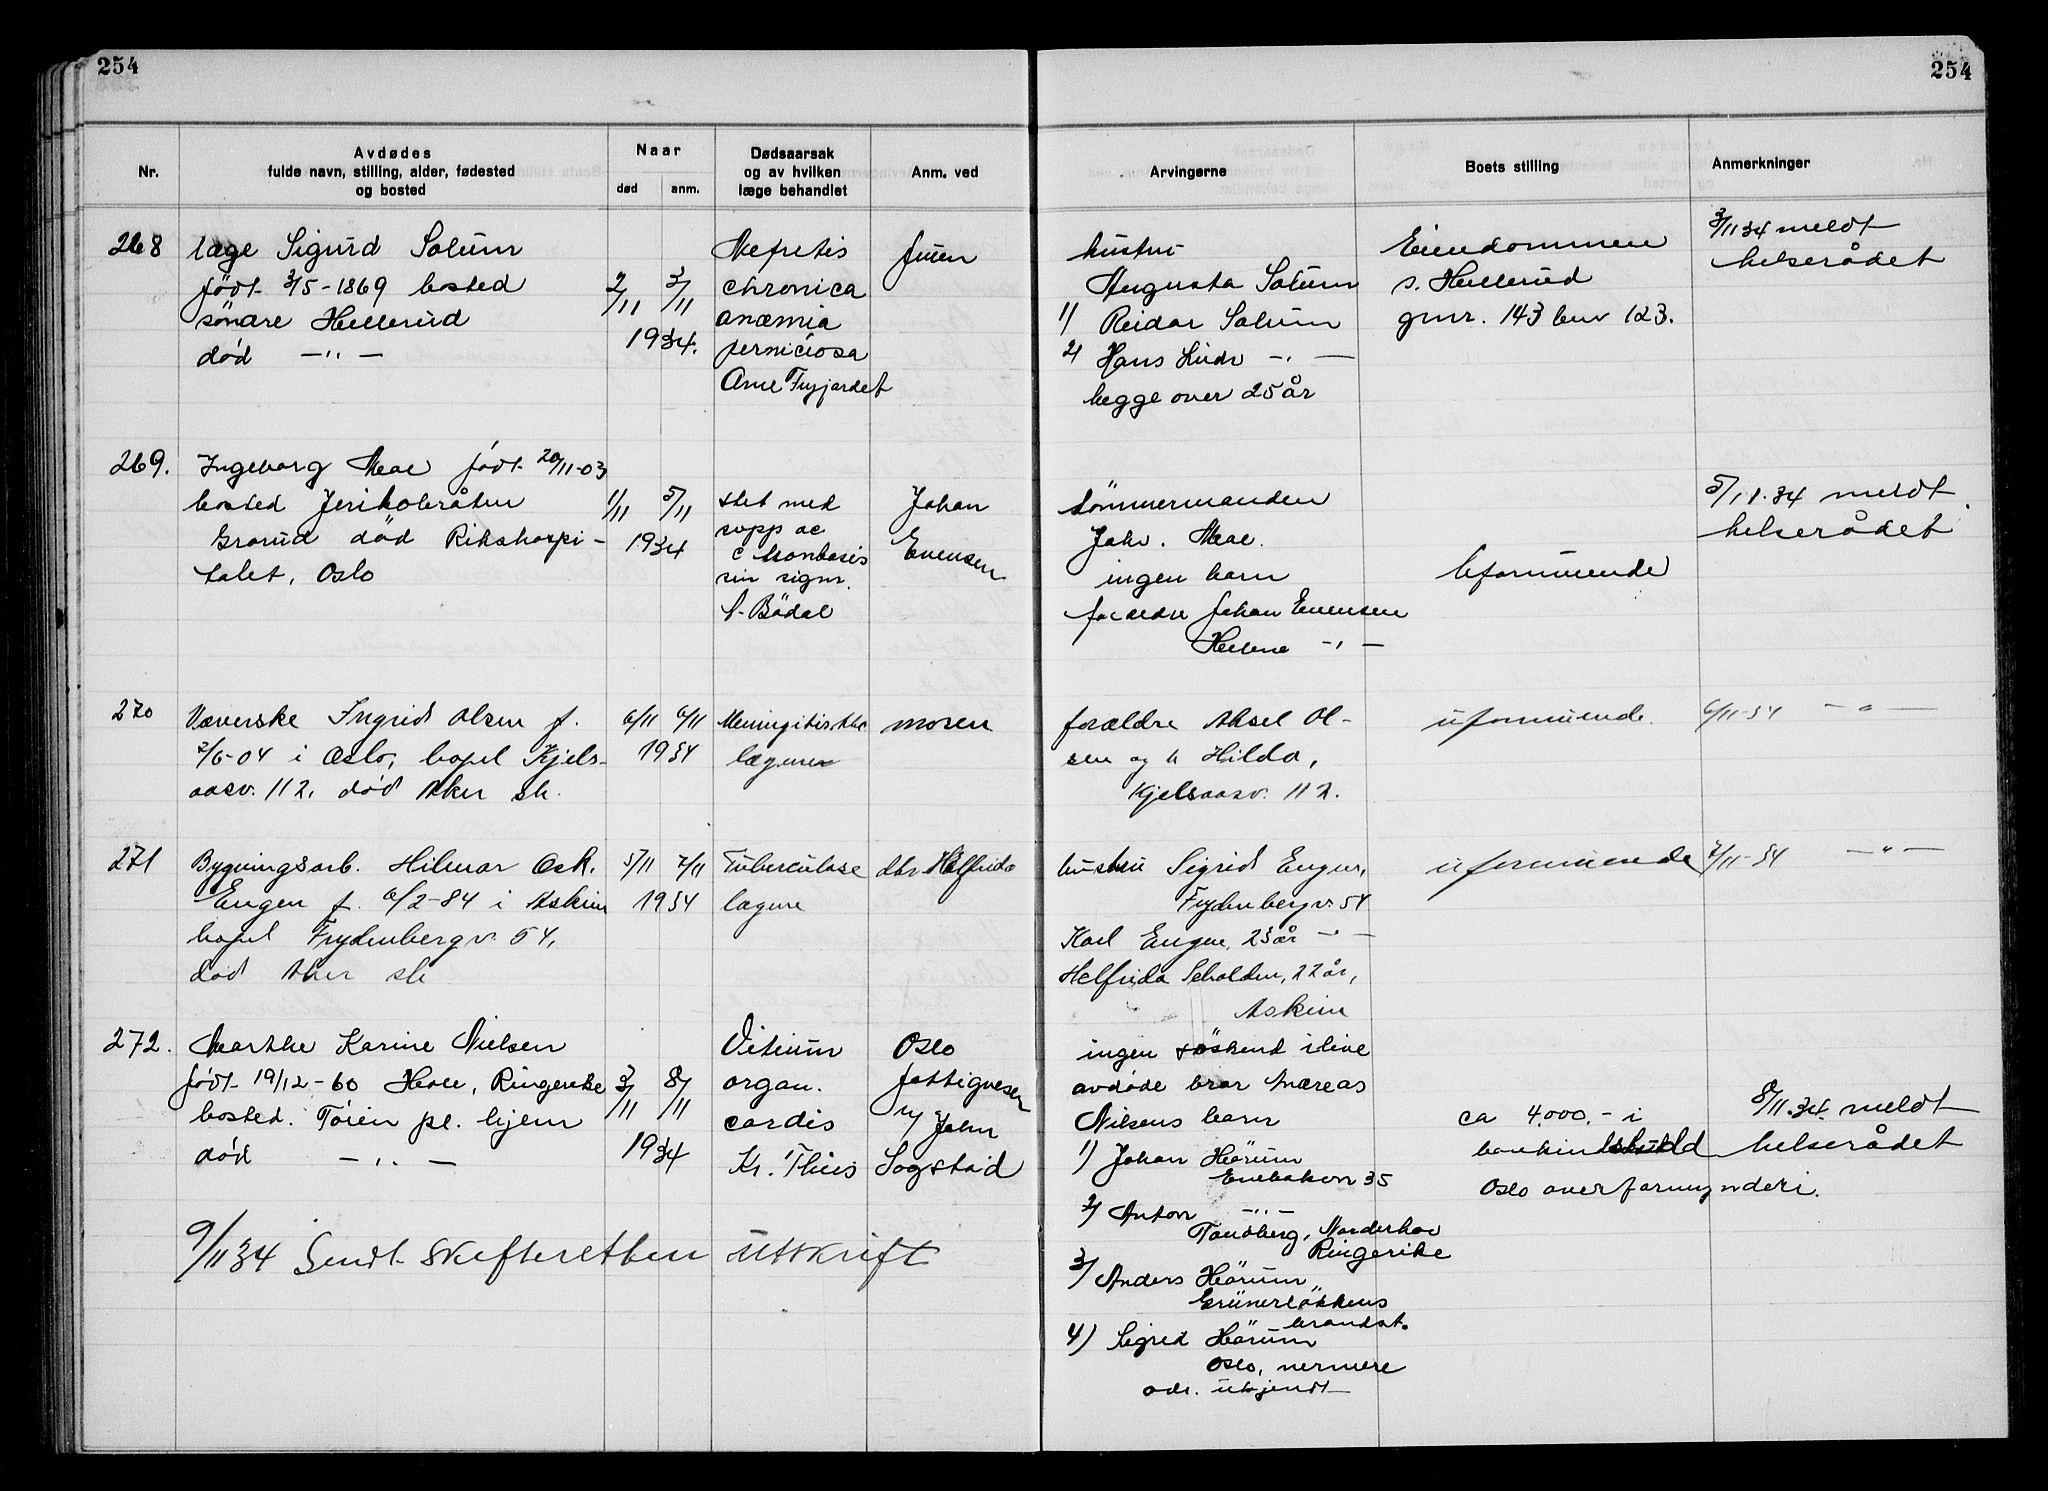 254
254
Nr.
Avdødes
fulde navn, stilling, alder, fødested
og bosted
Naar
død
anm.
Dødsaarsak
og av hvilken
læge behandlet
Anm. ved
Arvingerne
Boets stilling
Anmerkninger
268
læge Sigurd Solum
født 3/5-1869 bosted
söndre Hellerud
død —"—
2/11 3/11
1934.
Nefretis
chronica
anæmia
perniciosa
Arne
fruen
hustru
Augusta Solum
1) Reidar Solum
2) Hans —"—
begge over 25 år
Eiendommen
s. Hellerud
gnr. 143 bnr 123.
3/11 34 meldt
helserådet
269.
Ingeborg Moe født 20/11-03
bosted Jerikobråten
Grorud død Rikshospi-
talet, Oslo
1/11 5/11
1934
sin sigm.
Bödal
Johan
Evensen
tömmermanden
Joh. Moe.
ingen barn
forældre Johan Evensen
Helene —"—
uformuende
5/11.34 meldt
helserådet
270
Væverske Ingrid Olsen f.
2/6-04 i Oslo, bopel Kjels-
aasv. 112, død Aker sh.
6/11 6/11
1934
Meningitis tbc
lægene
moren
forældre Aksel Ol-
sen og h Hilda,
Kjelsaasv. 112.
uformuende.
6/11-34 —"—
271
Bygningsarb. Hilmar Osk.
Engen f. 6/2-84 i Askim
bopel Frydenbergv. 54,
død Aker sh
5/11 7/11
1934
Tuberculose
lægene
dtr. Helfrida
hustru Sigrid Engen,
Frydenbergv. 54
Karl Engen, 23 år —"—
Helfrida, 22 år,
Askim
uformuende
7/11-34 —"—
272.
Marthe Karine Nielsen
født 19/12-60 Hole, Ringerike
bosted. Töien pl. hjem
død —"—
3/11 8/11
1934
Vitium
organ.
cordis
Kr. Thiis
Oslo
fattigvesen
v/ John
Sogstad
ingen söskend ilive
avdöde bror Andreas
Nilsens barn
1) Johan Hörum
Enebakvn 35
2) Anton —"—
Tandberg, Norderhov
Ringerike
3) Anders Hörum
Grünerløkkens
brandst.
4) Sigrid Hörum
Oslo, nermere
adr. ukjendt
ca 4.000.- i
Oslo overformynderi.
8/11.34. meldt
helserådet
9/11 34 Sendt skifteretten utskrift